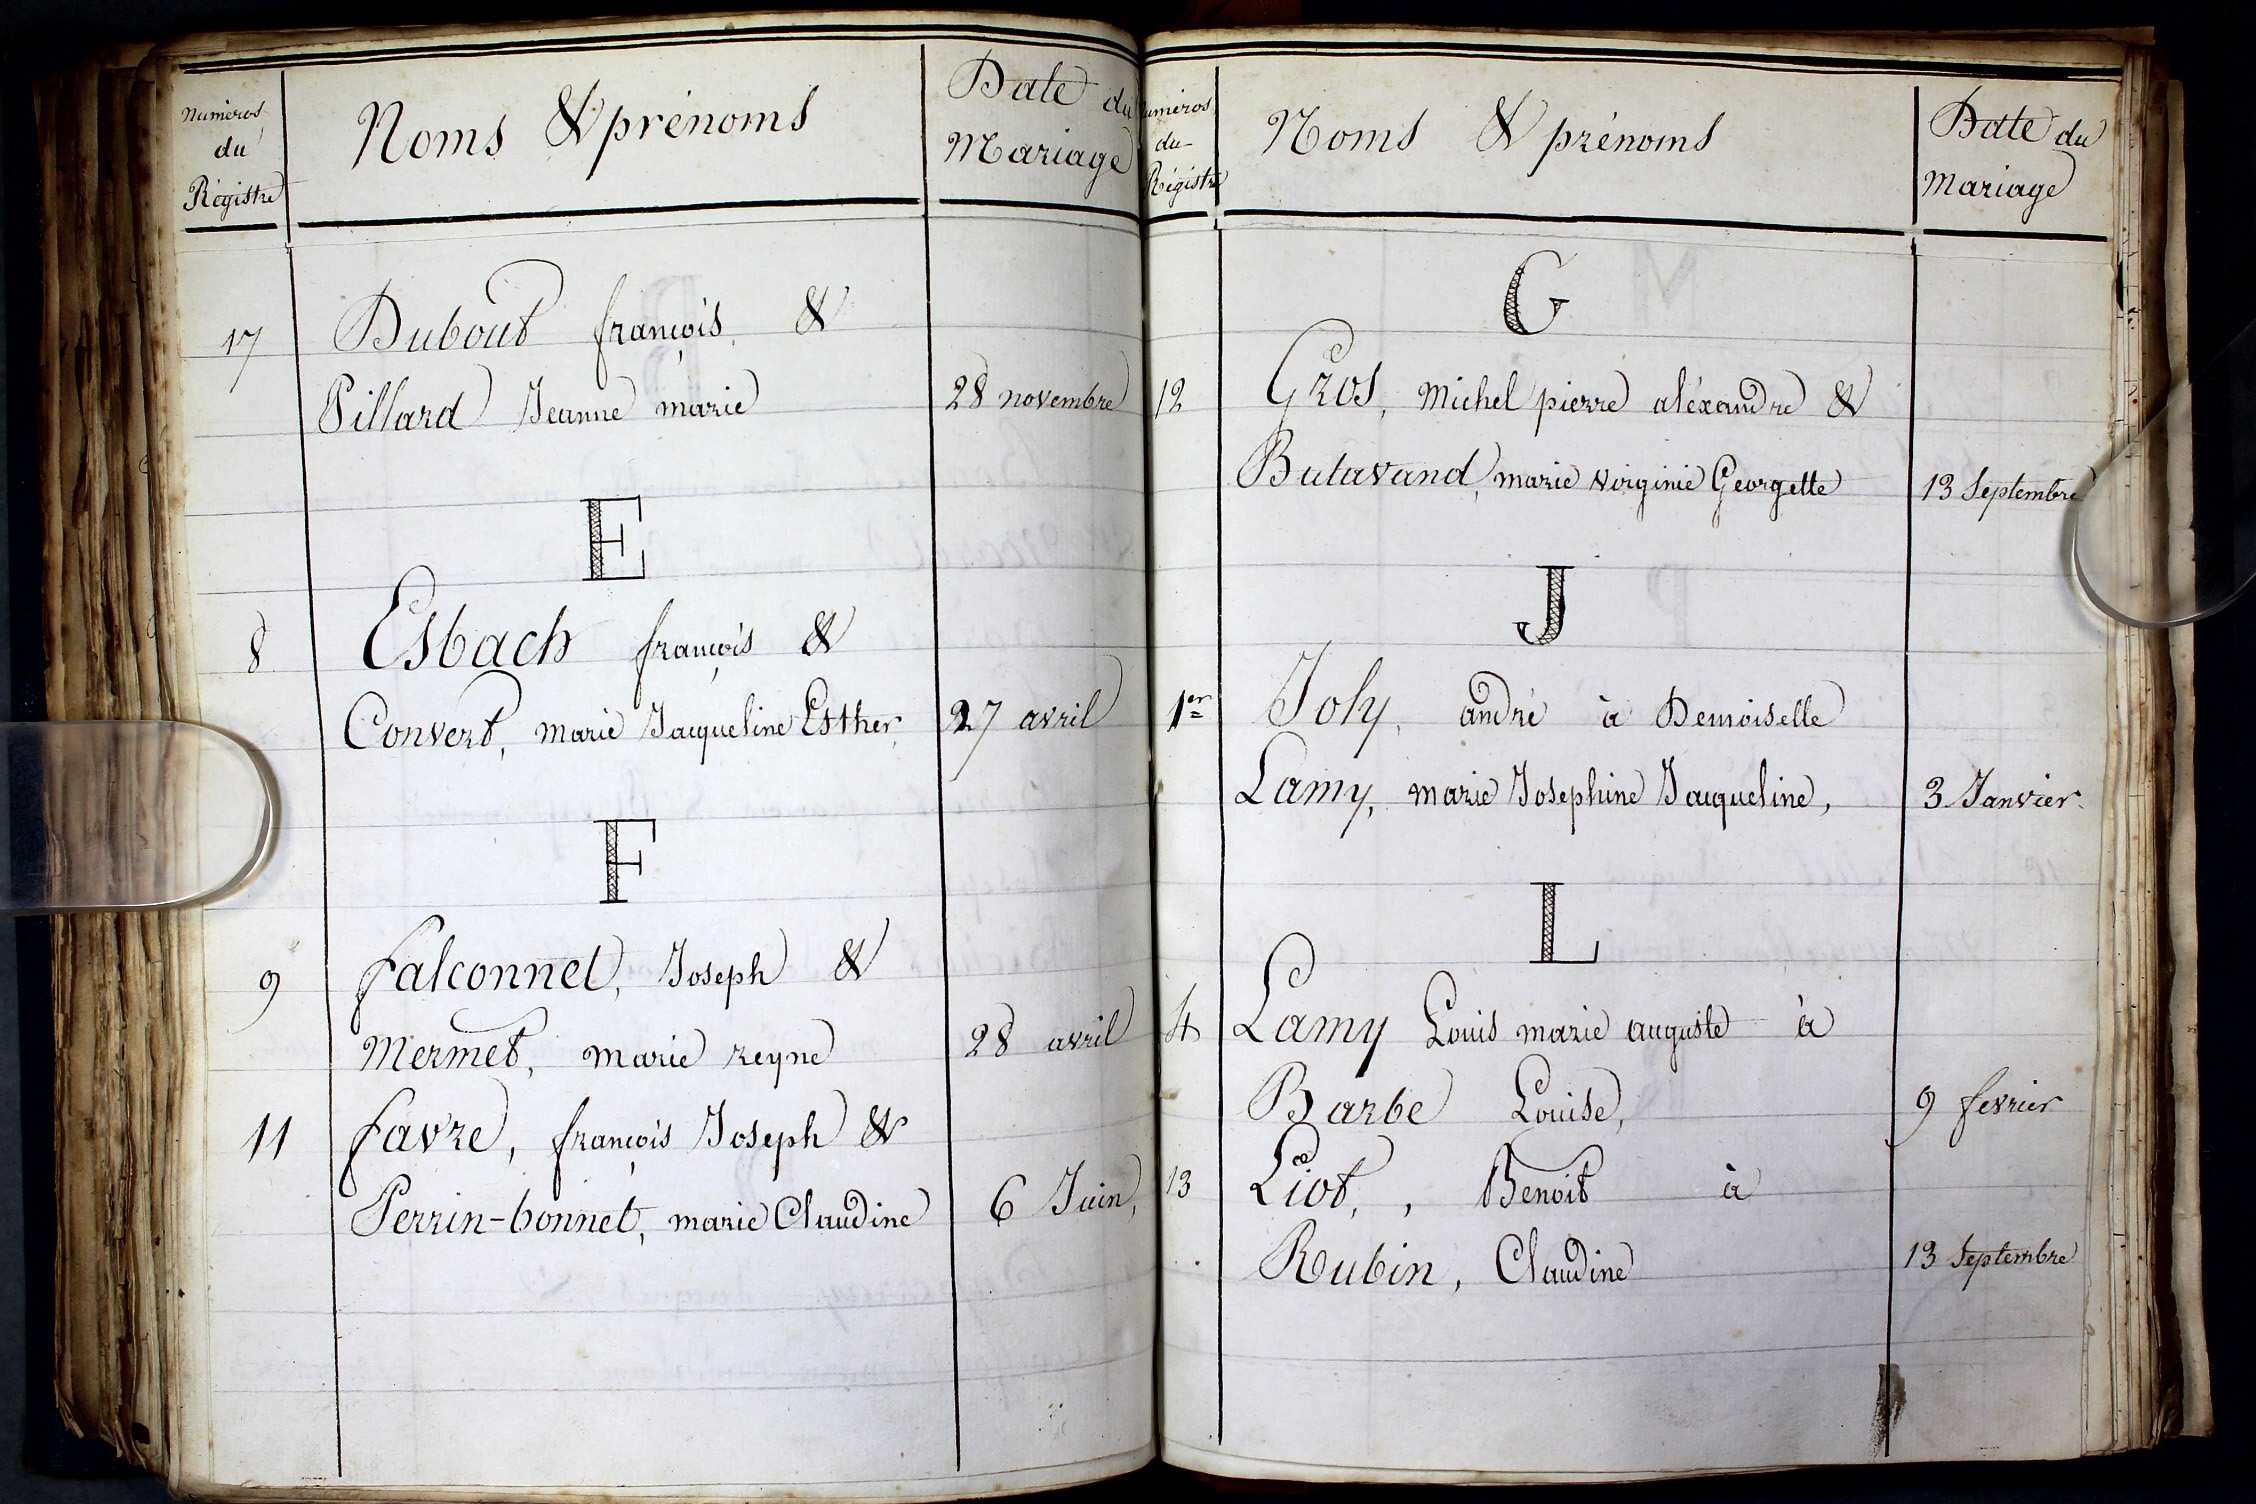 Numéros
du
Régistre
Noms & prénoms
Date du
Mariage
17 Dubout françois &
Pillard Jeanne marie 28 novembre
E
8 Esbach françois &
Convert, marie Jacqueline Esther, 27 avril
F
9 Falconnet, Joseph &
Mermet, marie reyne 28 avril
11 Favre, françois Joseph &
Perrin-bonnet, marie Claudine 6 Juin,
Numéros
du
Régistre
Noms & prénoms
Date du
Mariage
G
12 Gros, Michel pierre aléxandre &
Butavand, marie virginie Georgette 13 Septembre
J
1er Joly, andré à Demoiselle
Lamy, marie Josephine Jacqueline, 3 Janvier
L
4 Lamy Louis marie auguste à
Barbe Louise, 9 fevrier
13 Liot, , Benoit à
Rubin, Claudine 13 Septembre